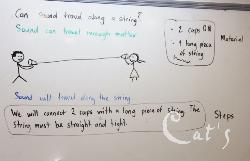 Can sound travel along a string?
Sound can travel through matter.
- 2 cups
- 1 long piece of string
Material
Sound will travel along the string.
We will connect 2 cups with a long piece of string. The
string must be straight and tight.
Steps
Cat's